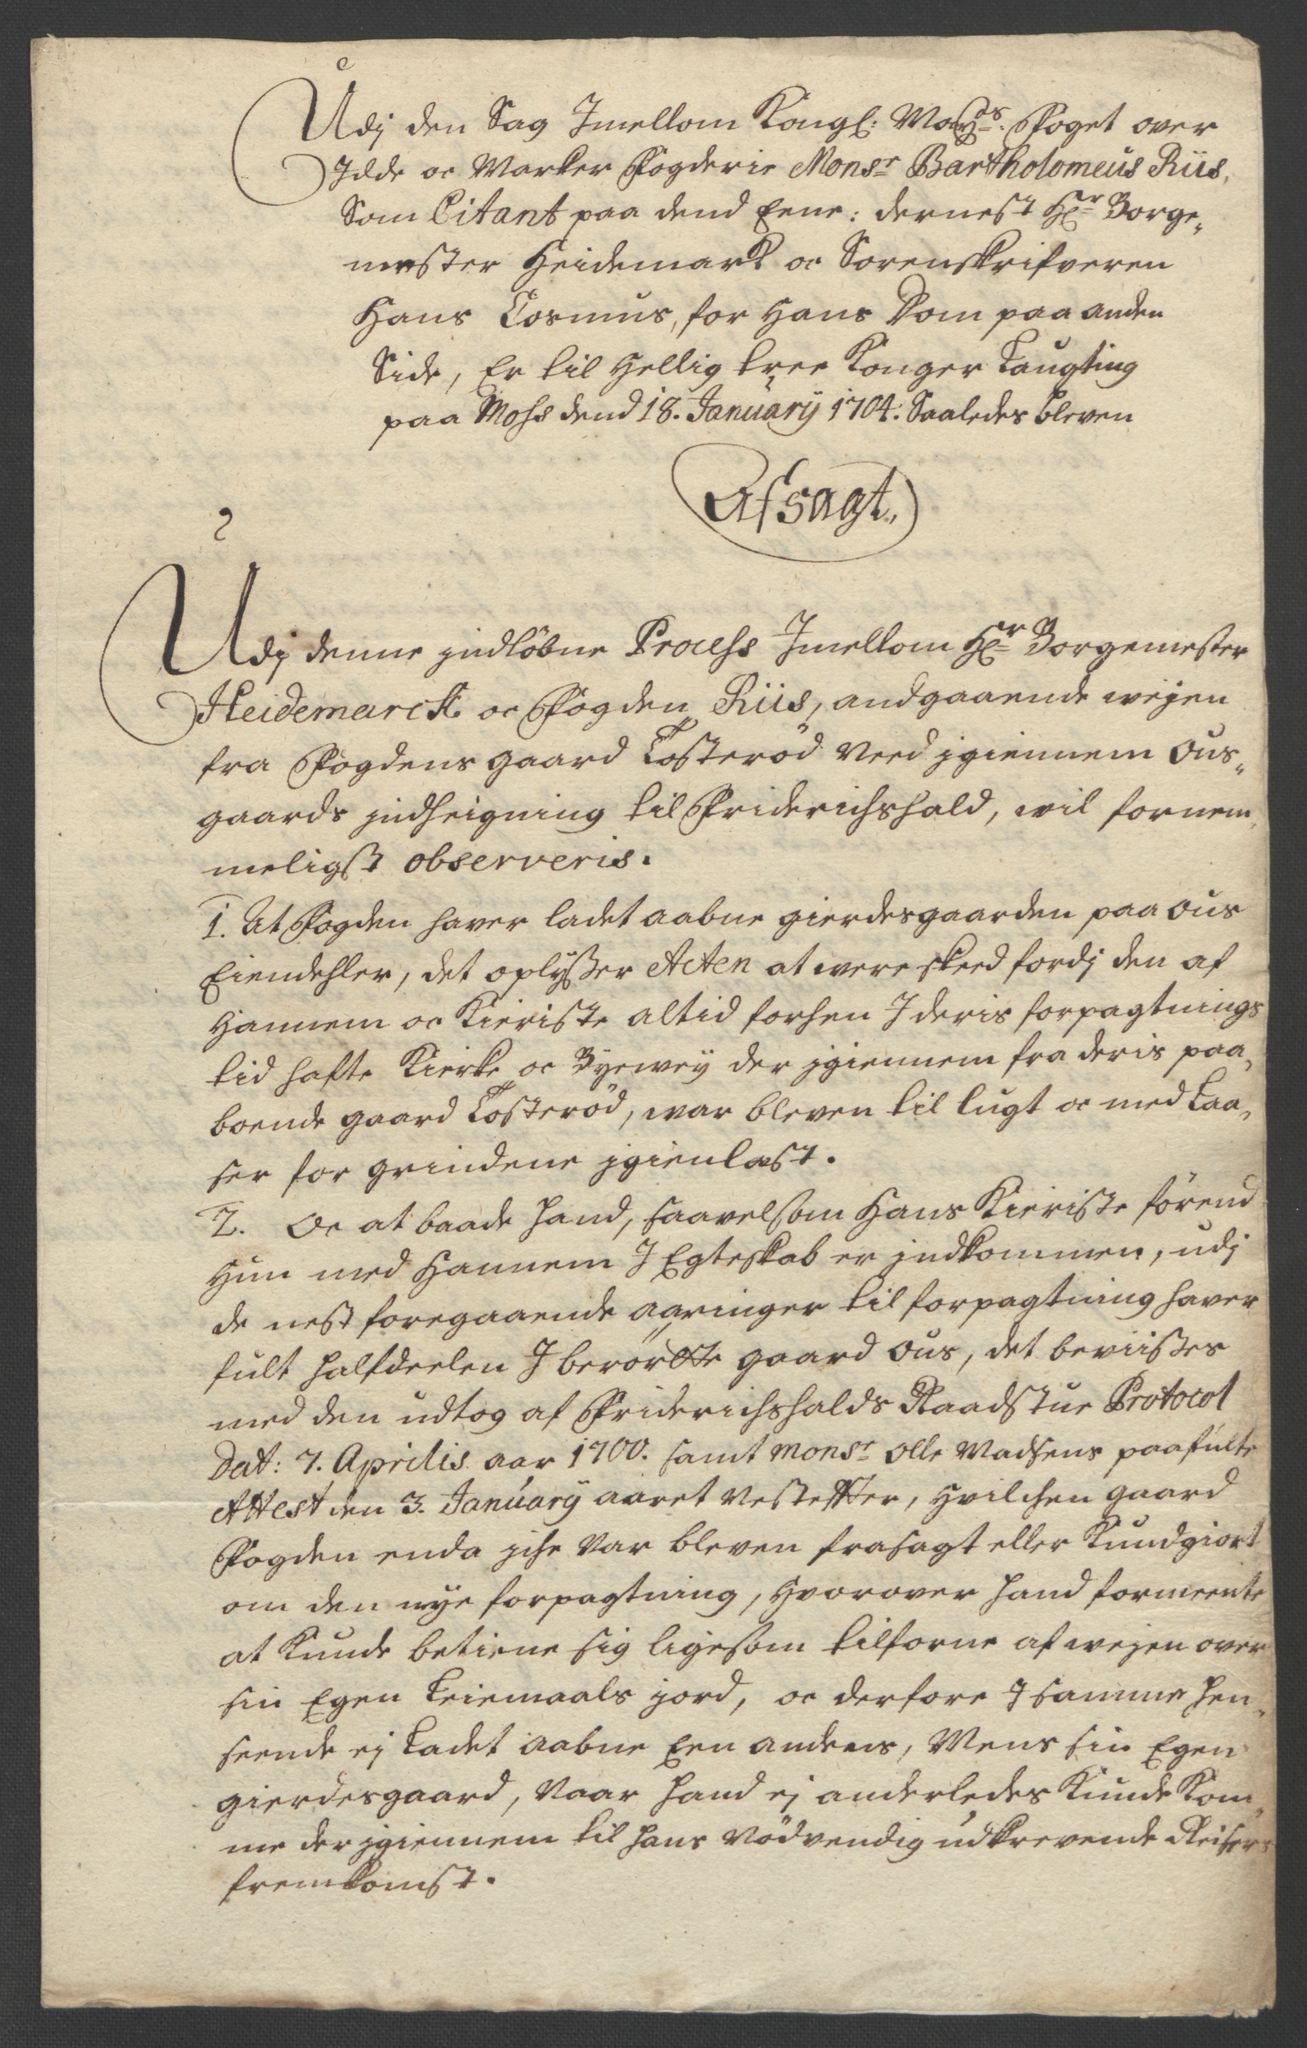 Udj den Sag Imellom Kongl: May:ts Foget over
Idde oc Marker Fogderie Monsr Bartholomeus Riis,
Som Citant paa dend Eene: dernest Hr Borge-
mester Heidemark oc Sorenskrifveren
Hans Cosmus, for Hans Dom paa anden
Side, Er til Hellig tree Konger Laugting
paa Mohs dend 18. January 1704. Saaledes bleven
Afsagt.
Udj denne indløbne Process Imellom Hr Borgemester
Heidemarck oc Fogden Riis, andgaaende wejen
fra Fogdens gaard Tosterød Need igiennem Ous-
gaards indheigning til Friderichshald, wil fornem-
meligst observeris.
1. At Fogden haver ladet aabne gierdesgaarden paa Ous
Eiendehler, det oplysser Acten at were skeed fordj den af
Hannem oc Kieriste altid forhen I deris forpagtnings
tid hafte Kirke oc Byewey der igiennem fra deris paa-
boende gaard Tosterød, war bleven til lugt oc med Laa-
ser for grindene igienlæst.
2. Oc at baade hand, saavelsom Hans Kieriste førend
Hun med Hannem I Egteskab er indkommen, udj
de nest foregaaende aaringer til forpagtning haver
fult halfdeelen I berørtte gaard Ous, det beviisses
med den udtog af Friderichshalds Raadstue Protocol
Dat: 7. Aprilis aar 1700. samt Monsr Olle Madsens paafulte
Attest den 3. January aaret Nesteffter, Hvilchen gaard
Fogden enda iche Var bleven frasagt eller Kundgiort
om den nye forpagtning, Hvorover hand formeente
at Kunde betiene sig ligesom tilforne af wejen over
sin Egen Leiemaals jord, oc derfore I samme hen-
seende ej Ladet aabne Een andens, Mens sin Egen
gierdesgaard, Naar hand ej anderledes Kunde Kom-
me der igiennem til hans Nødvendig udkrevende Reisers
fremkomst.